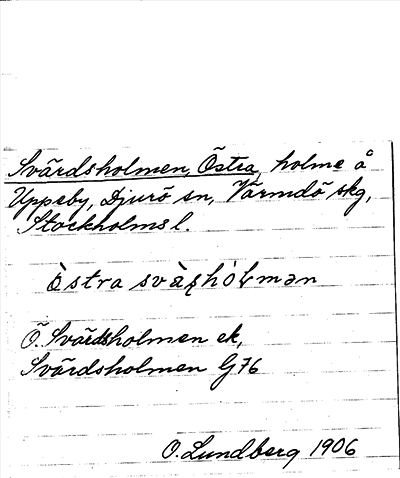 Svärdsholmen, Östra, holme å
Uppeby, Djurö sn, Värmdö skg,
Stockholms l.
Östra
Ö. Svärdsholmen ek,
Svärdsholmen G76
O. Lundberg 1906